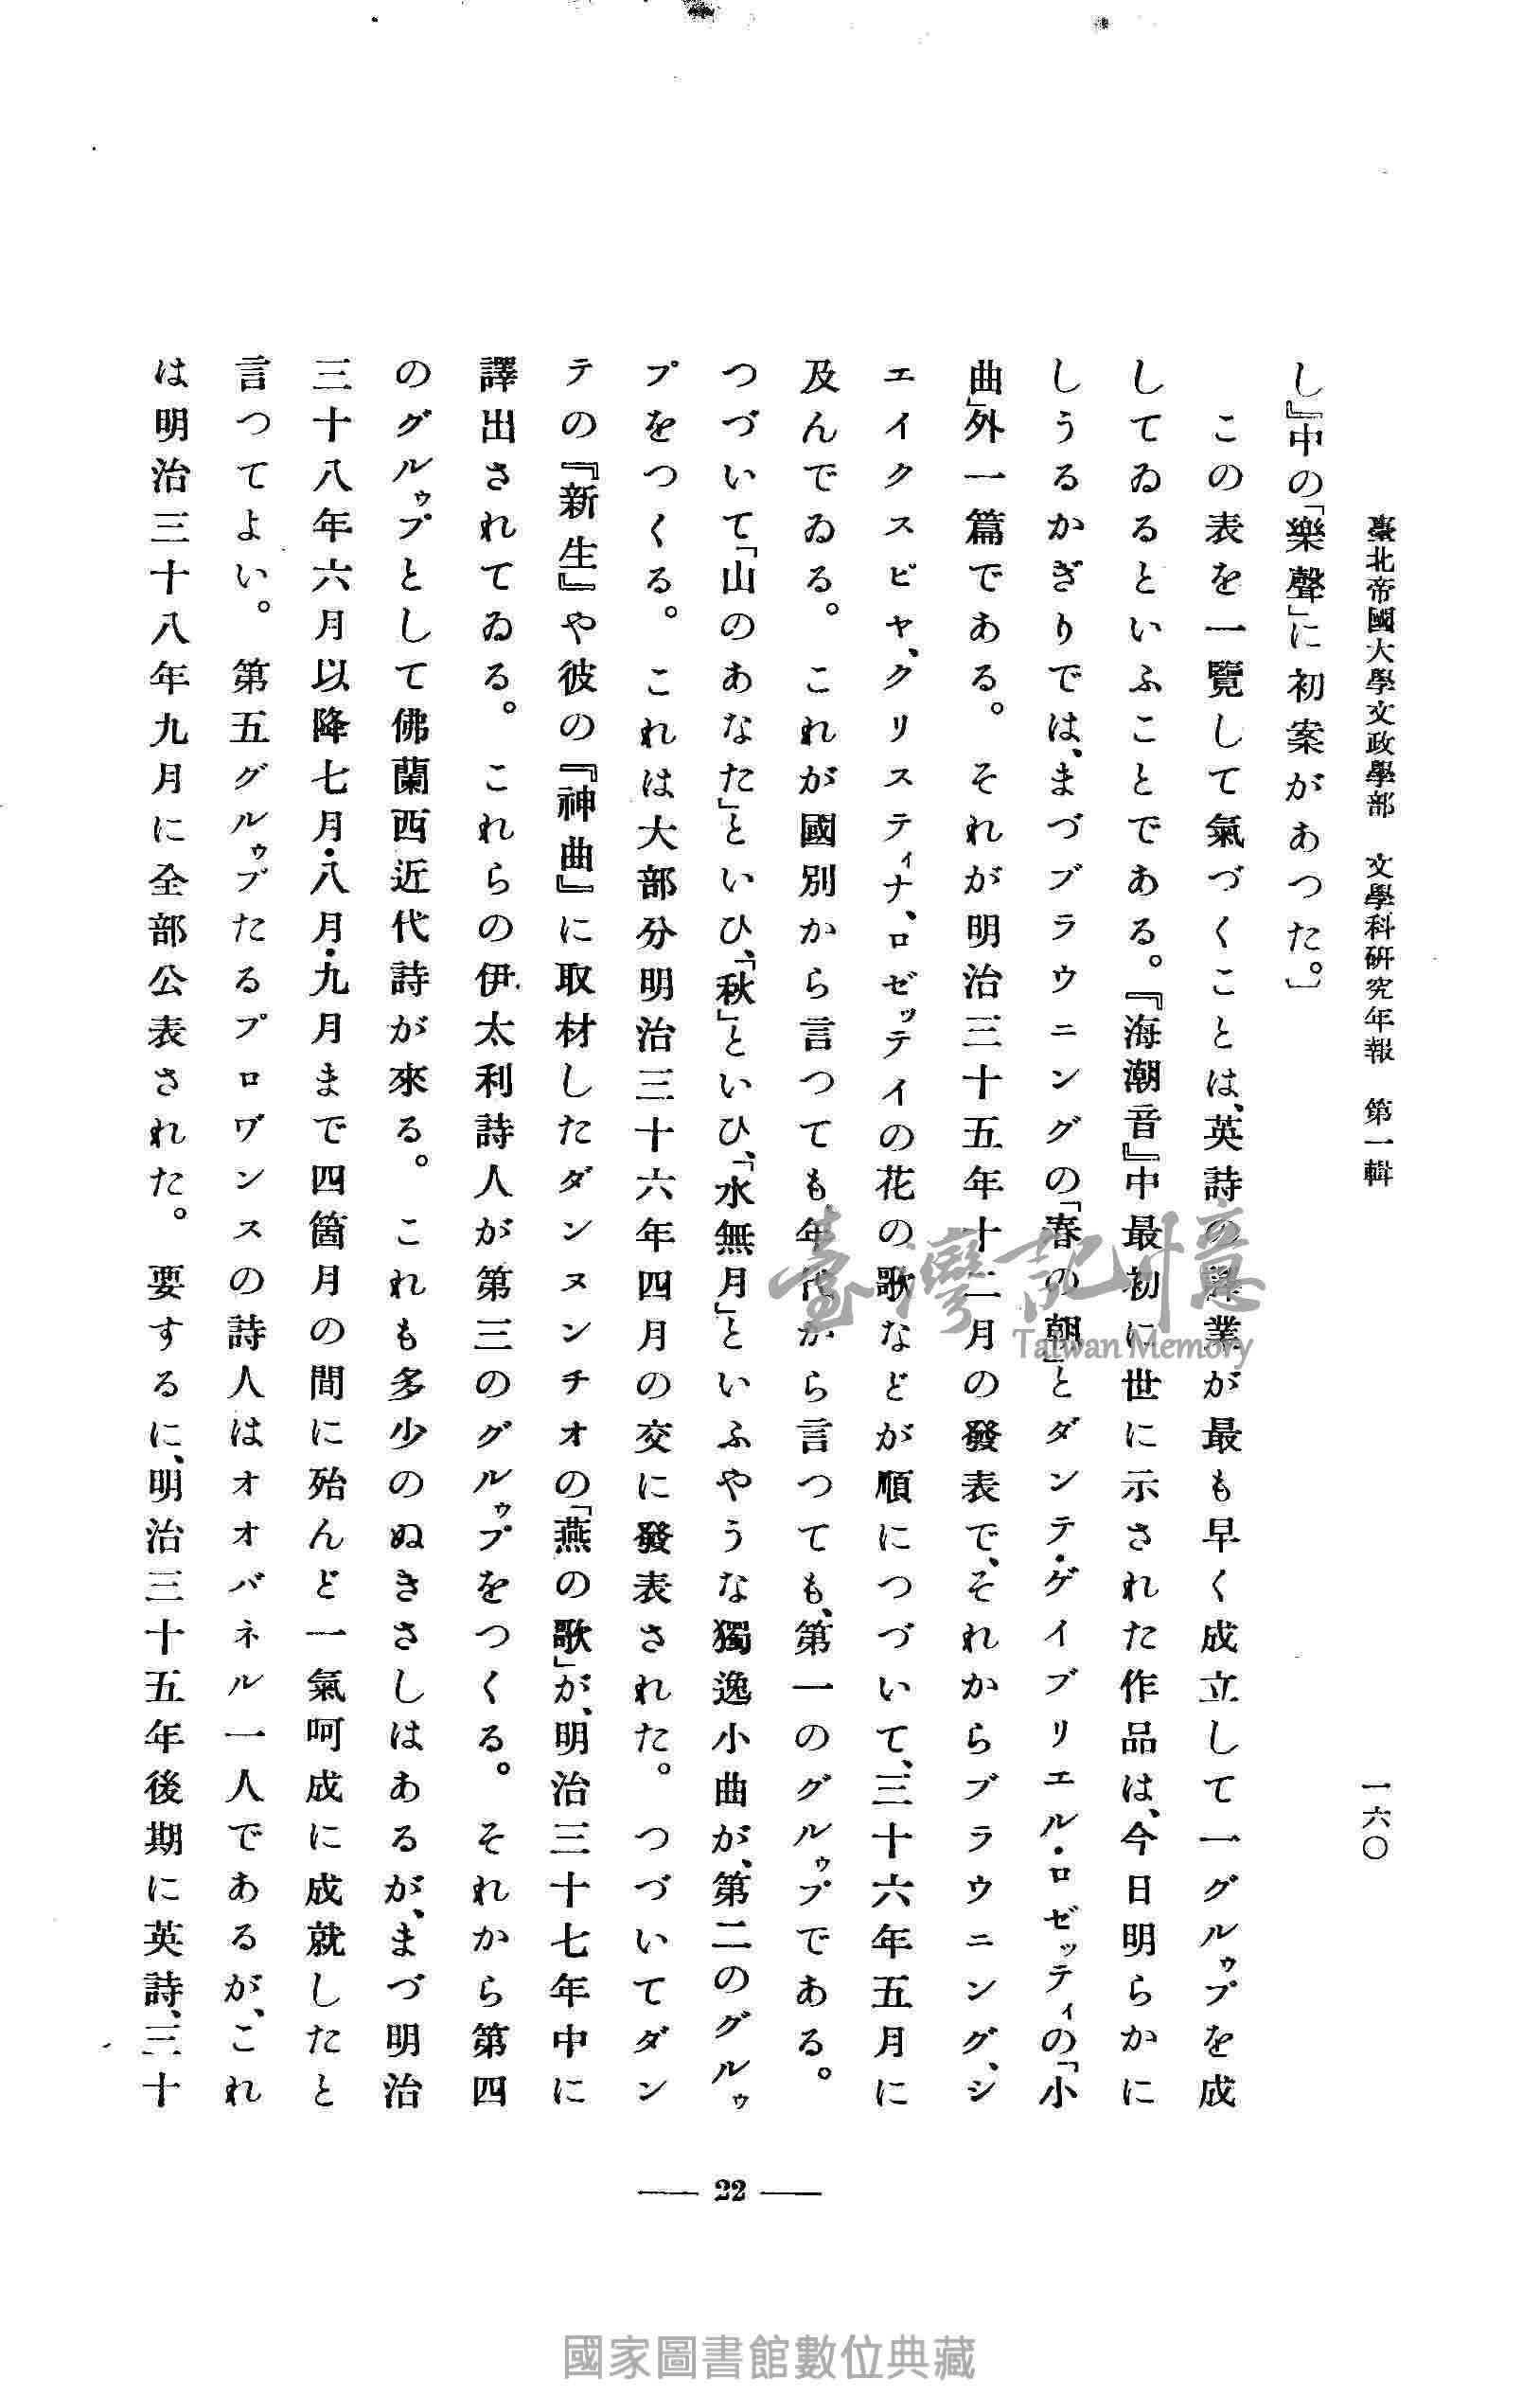 臺北帝國大學文政學部　文學科硏究年報　第一輯　一六〇
し』中の「樂聲」に初案があつた。〕
この表を一覽して氣づくことは、英詩の譯業が最も早く成立して一グルゥプを成
してゐるといふことである。『海潮音』中最初に世に示された作品は、今日明らかに
しうるかぎりでは、まづブラウニングの「春の朝」とダンテ・ゲイブリエル・ロゼッティの「小
曲」外一篇である。それが明治三十五年十二月の發表で、それからブラウニング、シ
エイクスピヤ、クリスティナ、ロゼッテイの花の歌などが順につづいて、三十六年五月に
及んでゐる。これが國別から言つても、年代から言つても、第一のグルゥプである。
つづいて「山のあなた」といひ、「秋」といひ、「水無月」といふやうな獨逸小曲が、第二のグルゥ
プをつくる。これは大部分明治三十六年四月の交に發表された。つづいてダン
テの『新生』や彼の『神曲』に取材したダンヌンチオの「燕の歌」が、明治三十七年中に
譯出されてゐる。これらの伊太利詩人が第三のグルゥプをつくる。それから第四
のグルゥプとして佛蘭西近代詩が來る。これも多少のぬきさしはあるが、まづ明治
三十八年六月以降七月・八月・九月まで四箇月の間に殆んど一氣呵成に成就したと
言つてよい。第五グルゥプたるプロヷンスの詩人はオオバネル一人であるが、これ
は明治三十八年九月に全部公表された。要するに、明治三十五年後期に英詩、三十
22
臺灣記憶
Taiwan Memory
國家圖書館數位典藏